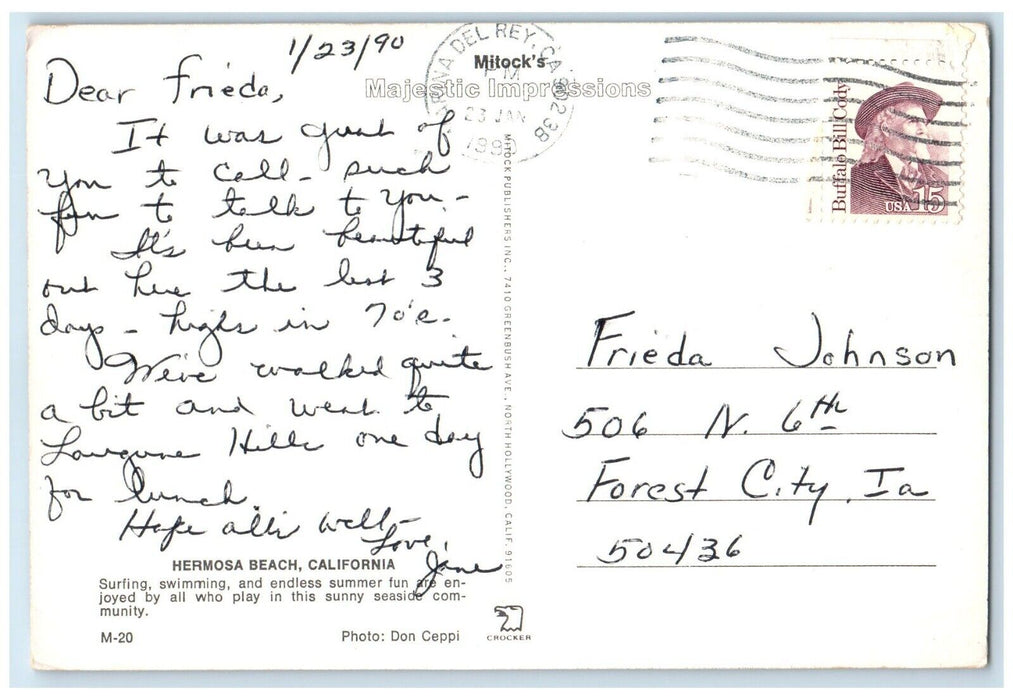 1/23/90
Dear Frieda,
It was great of
you to call - such
fun to talk to you -
It's been beautiful
out here the last 3
days - highs in 70's.
We've walked quite
a bit and went to
Hills one day
for lunch.
Hope all is well -
Love,
Jane
HERMOSA BEACH, CALIFORNIA
Surfing, swimming, and endless summer fun are en-
joyed by all who play in this sunny seaside com-
munity.
M-20
Photo: Don Ceppi
CROCKER
Mitock's
Majestic Impressions
MITOCK PUBLISHERS INC., 7410 GREENBUSH AVE., NORTH HOLLYWOOD, CALIF. 91605
MARINA DEL REY, CA 90238
PM
23 JAN
1990
Buffalo Bill Cody
USA 15
Frieda Johnson
506 N. 6th
Forest City, Ia
50436